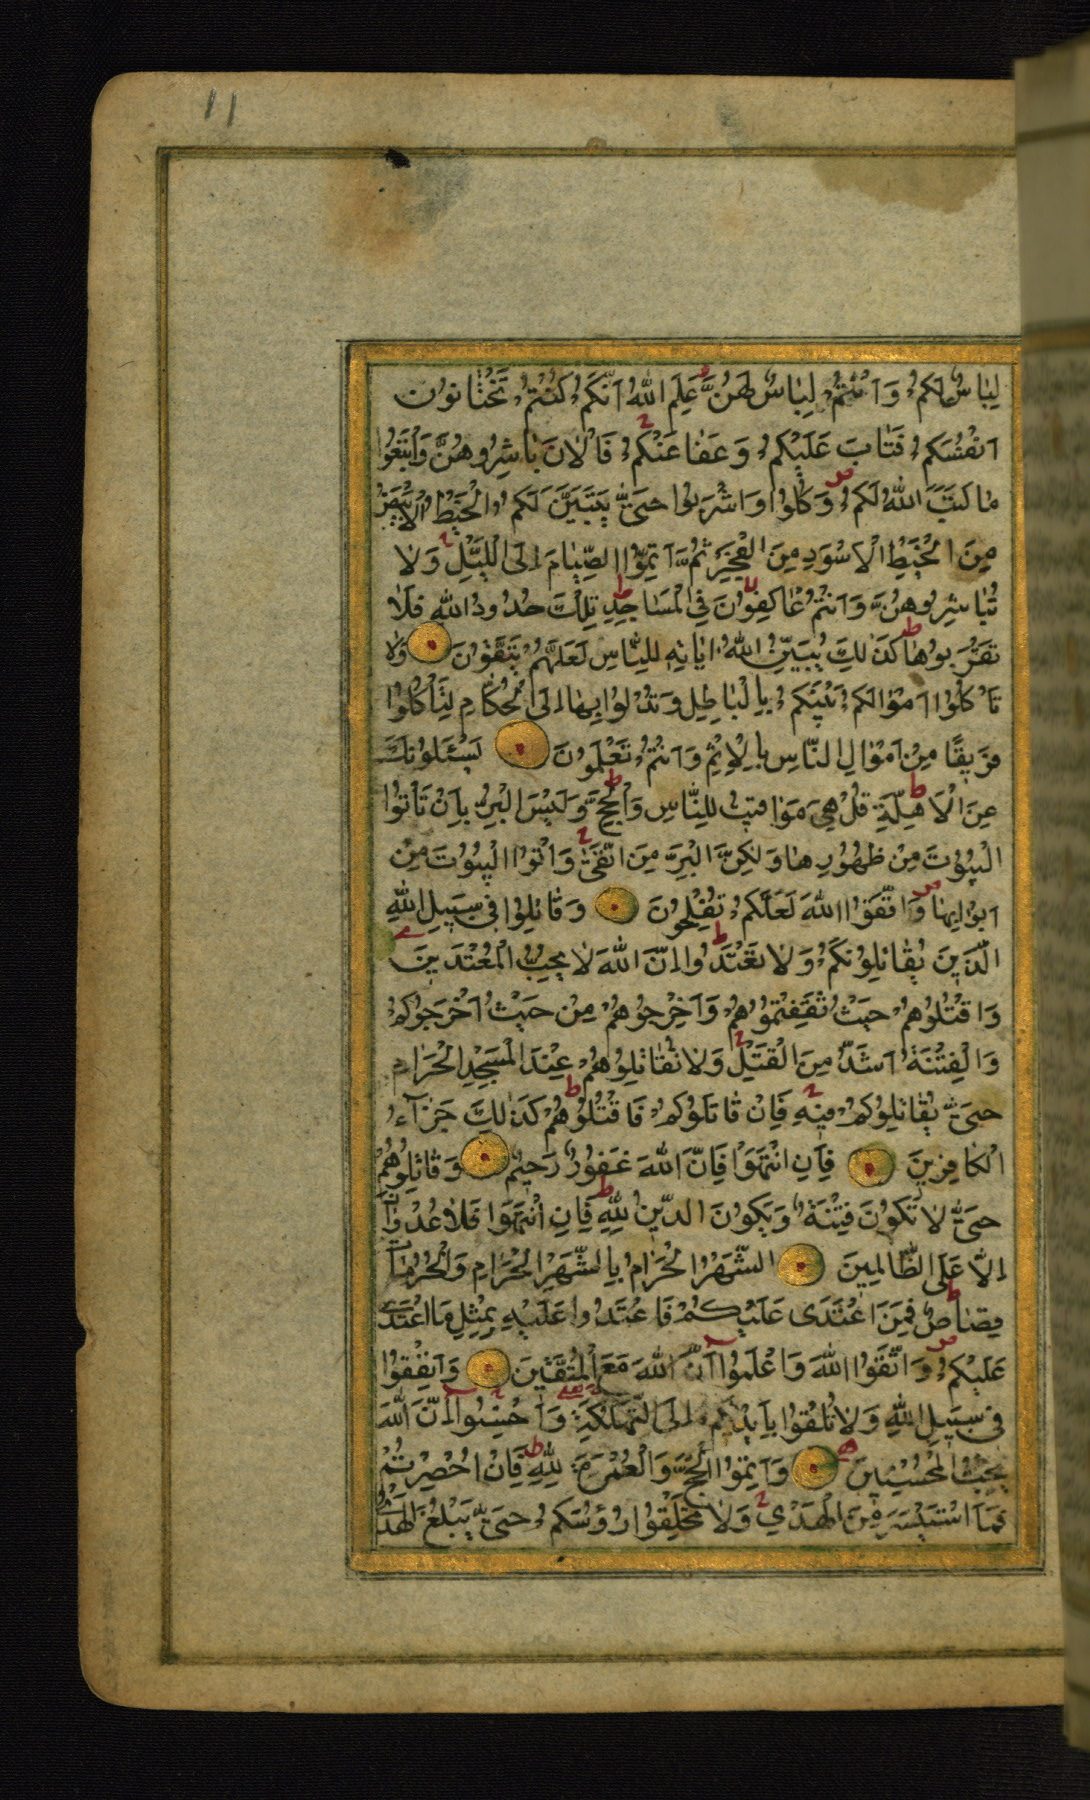 11
لِبَاسٌ لَكُمْ وَاَنْتُمْ لِبَاسٌ لَهُنَّ عَلِمَ اللّٰهُ اَنَّكُمْ كُنْتُمْ تَخْتَانُونَ
اَنْفُسَكُمْ فَتَابَ عَلَيْكُمْ وَعَفَا عَنْكُمْ فَالْاٰنَ بَاشِرُوهُنَّ وَابْتَغُوا
مَا كَتَبَ اللّٰهُ لَكُمْ وَكُلُوا وَاشْرَبُوا حَتّٰى يَتَبَيَّنَ لَكُمُ الْخَيْطُ الْاَبْيَضُ
مِنَ الْخَيْطِ الْاَسْوَدِ مِنَ الْفَجْرِ ثُمَّ اَتِمُّوا الصِّيَامَ اِلَى اللَّيْلِ وَلَا
تُبَاشِرُوهُنَّ وَاَنْتُمْ عَاكِفُونَ فِي الْمَسَاجِدِ تِلْكَ حُدُودُ اللّٰهِ فَلَا
تَقْرَبُوهَا كَذٰلِكَ يُبَيِّنُ اللّٰهُ اٰيَاتِهِ لِلنَّاسِ لَعَلَّهُمْ يَتَّقُونَ وَلَا
تَأْكُلُوا اَمْوَالَكُمْ بَيْنَكُمْ بِالْبَاطِلِ وَتُدْلُوا بِهَا اِلَى الْحُكَّامِ لِتَأْكُلُوا
فَرِيقًا مِنْ اَمْوَالِ النَّاسِ بِالْاِثْمِ وَاَنْتُمْ تَعْلَمُونَ يَسْئَلُونَكَ
عَنِ الْاَهِلَّةِ قُلْ هِيَ مَوَاقِيتُ لِلنَّاسِ وَالْحَجِّ وَلَيْسَ الْبِرُّ بِاَنْ تَأْتُوا
الْبُيُوتَ مِنْ ظُهُورِهَا وَلٰكِنَّ الْبِرَّ مَنِ اتَّقٰى وَاْتُوا الْبُيُوتَ مِنْ
اَبْوَابِهَا وَاتَّقُوا اللّٰهَ لَعَلَّكُمْ تُفْلِحُونَ وَقَاتِلُوا فِي سَبِيلِ اللّٰهِ
الَّذِينَ يُقَاتِلُونَكُمْ وَلَا تَعْتَدُوا اِنَّ اللّٰهَ لَا يُحِبُّ الْمُعْتَدِينَ
وَاقْتُلُوهُمْ حَيْثُ ثَقِفْتُمُوهُمْ وَاَخْرِجُوهُمْ مِنْ حَيْثُ اَخْرَجُوكُمْ
وَالْفِتْنَةُ اَشَدُّ مِنَ الْقَتْلِ وَلَا تُقَاتِلُوهُمْ عِنْدَ الْمَسْجِدِ الْحَرَامِ
حَتّٰى يُقَاتِلُوكُمْ فِيهِ فَاِنْ قَاتَلُوكُمْ فَاقْتُلُوهُمْ كَذٰلِكَ جَزَآءُ
الْكَافِرِينَ فَاِنِ انْتَهَوْا فَاِنَّ اللّٰهَ غَفُورٌ رَحِيمٌ وَقَاتِلُوهُمْ
حَتّٰى لَا تَكُونَ فِتْنَةٌ وَيَكُونَ الدِّينُ لِلّٰهِ فَاِنِ انْتَهَوْا فَلَا عُدْوَانَ
اِلَّا عَلَى الظَّالِمِينَ الشَّهْرُ الْحَرَامُ بِالشَّهْرِ الْحَرَامِ وَالْحُرُمَاتُ
قِصَاصٌ فَمَنِ اعْتَدٰى عَلَيْكُمْ فَاعْتَدُوا عَلَيْهِ بِمِثْلِ مَا اعْتَدٰى
عَلَيْكُمْ وَاتَّقُوا اللّٰهَ وَاعْلَمُوا اَنَّ اللّٰهَ مَعَ الْمُتَّقِينَ وَاَنْفِقُوا
فِي سَبِيلِ اللّٰهِ وَلَا تُلْقُوا بِاَيْدِيكُمْ اِلَى التَّهْلُكَةِ وَاَحْسِنُوا اِنَّ اللّٰهَ
يُحِبُّ الْمُحْسِنِينَ وَاَتِمُّوا الْحَجَّ وَالْعُمْرَةَ لِلّٰهِ فَاِنْ اُحْصِرْتُمْ
فَمَا اسْتَيْسَرَ مِنَ الْهَدْيِ وَلَا تَحْلِقُوا رُؤُسَكُمْ حَتّٰى يَبْلُغَ الْهَدْيُ